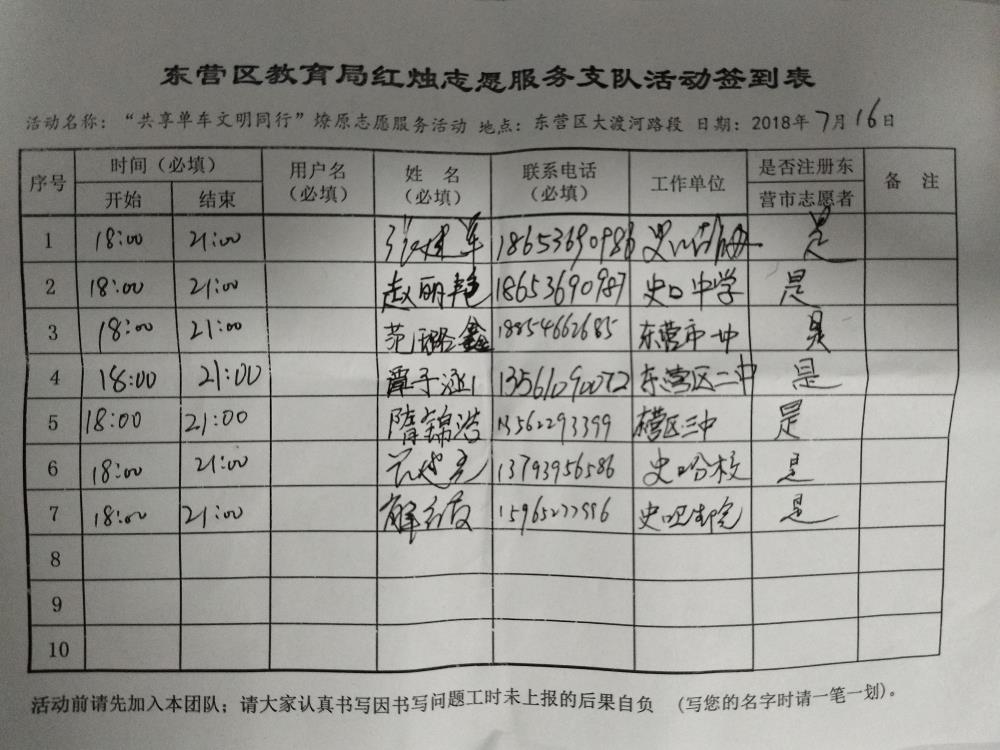 东营区教育局红烛志愿服务支队活动签到表
活动名称：“共享单车文明同行”燎原志愿服务活动 地点：东营区大渡河路段 日期：2018年7月16日
序号 时间（必填） 用户名（必填） 姓 名（必填） 联系电话（必填） 工作单位 是否注册东营市志愿者 备 注
开始 结束
1 18:00 21:00 18653690986 是
2 18:00 21:00 赵丽艳 18653690987 史口中学 是
3 18:00 21:00 范璐鑫 18854662685 东营市一中 是
4 18:00 21:00 13561090072 东营区二中 是
5 18:00 21:00 隋锦浩 13562293399 是
6 18:00 21:00 13793956586 是
7 18:00 21:00 是
8
9
10
活动前请先加入本团队；请大家认真书写因书写问题工时未上报的后果自负 （写您的名字时请一笔一划）。